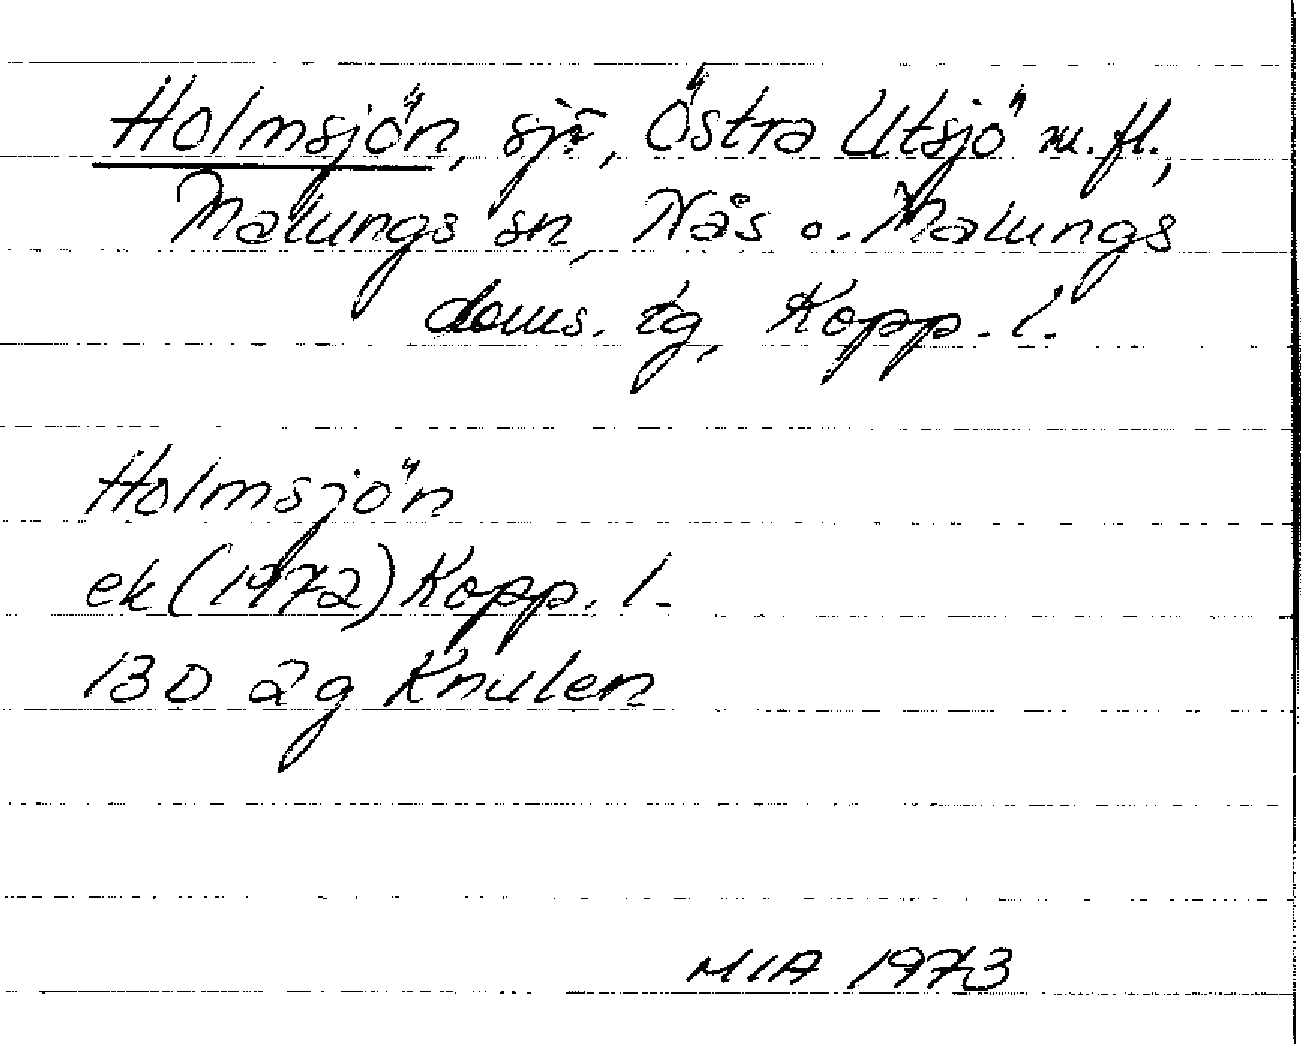 Holmsjön, sjö, Östra Utsjö m.fl.,
Malungs sn, Nås o. Malungs
doms. tg, Kopp. l.
Holmsjön
ek (1972) Kopp. l.
13D 2g Knulen
MIA 1973